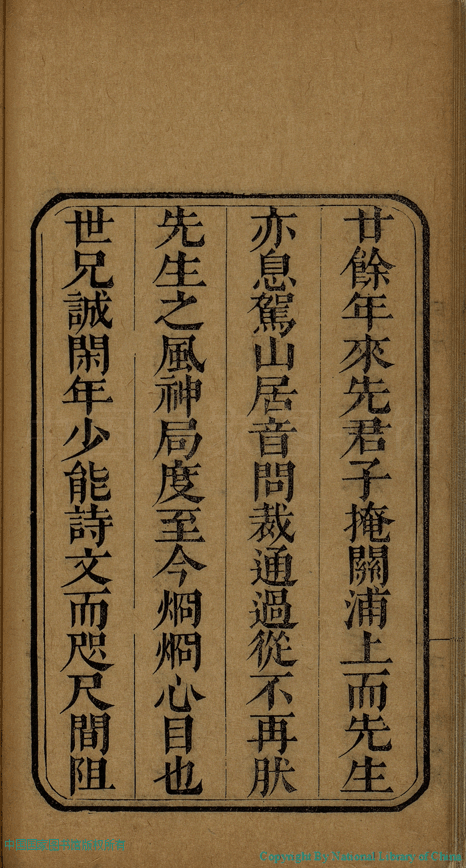 廿餘年來先君子掩關浦上而先生
亦息駕山居音問裁通過從不再肰
先生之風神局度至今烱烱心目也
世兄誠閑年少能詩文而咫尺間阻
Copyright By National Library of China